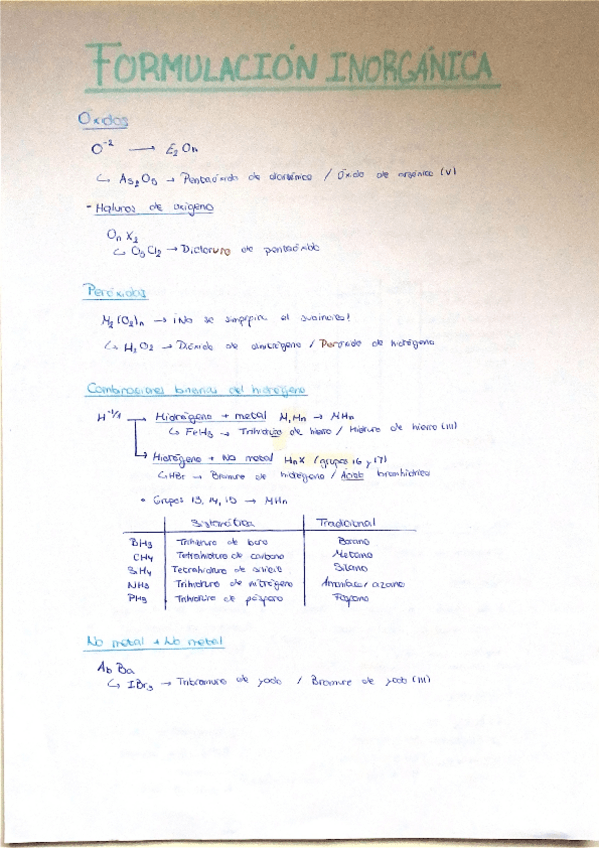 FORMULACIÓN INORGÁNICA
Óxidos
O⁻² → E₂On
↳ As₂O₅ → Pentaóxido de diarsénico / Óxido de arsénico (V)
- Haluros de oxígeno
OnX₂
↳ O₅Cl₂ → Dicloruro de pentaóxido
Peróxidos
M₂(O₂)n → ¡No se simplifica el subíndice!
↳ H₂O₂ → Dióxido de dihidrógeno / Peróxido de hidrógeno
Combinaciones binarias del hidrógeno
H⁻¹/¹ → Hidrógeno + metal M₁Hn → MHn
↳ FeH₃ → Trihidruro de hierro / Hidruro de hierro (III)
↳ Hidrógeno + No metal HnX (grupos 16 y 17)
↳ HBr → Bromuro de hidrógeno / Ácido bromhídrico
• Grupos 13, 14, 15 → MHn
Sistemática Tradicional
BH₃ Trihidruro de boro Borano
CH₄ Tetrahidruro de carbono Metano
SiH₄ Tetrahidruro de silicio Silano
NH₃ Trihidruro de nitrógeno Amoniaco / azano
PH₃ Trihidruro de fósforo Fosfano
No metal + No metal
AbBa
↳ IBr₃ → Tribromuro de yodo / Bromuro de yodo (III)